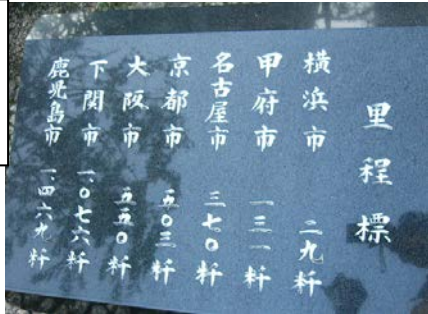 里程標
横浜市 二九粁
甲府市 一三一粁
名古屋市 三七〇粁
京都市 五〇三粁
大阪市 五五〇粁
下関市 一、〇七六粁
鹿児島市 一、四六九粁